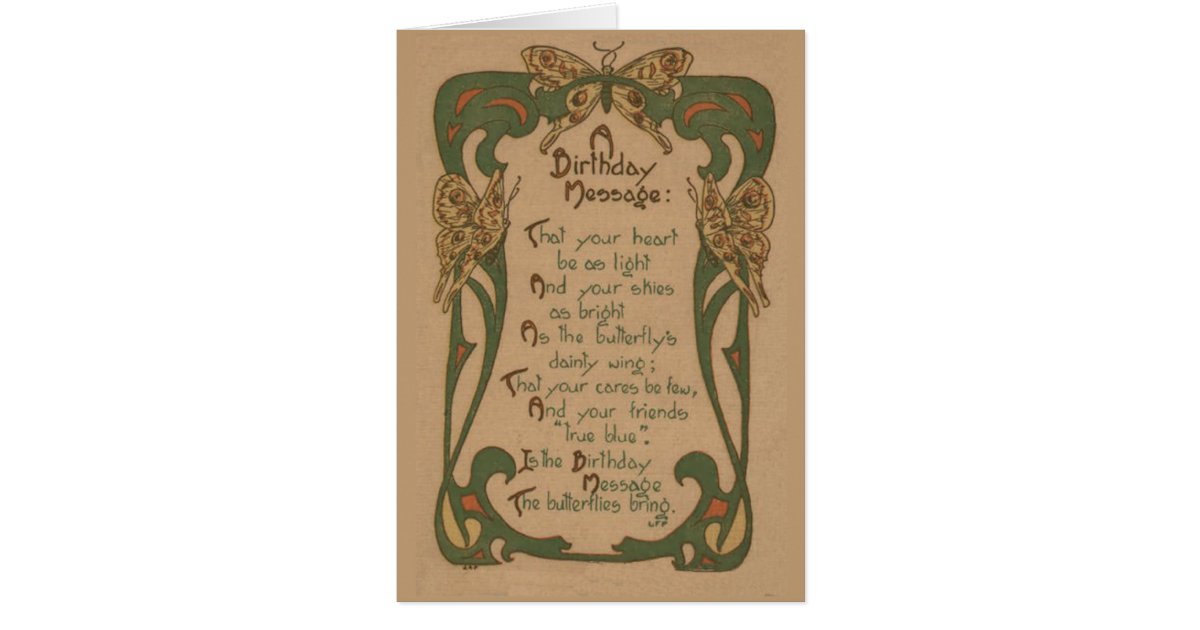 A
Birthday
Message:
That your heart
be as light
And your skies
as bright
As the butterfly's
dainty wing;
That your cares be few,
And your friends
"true blue".
Is the Birthday
Message
The butterflies bring.